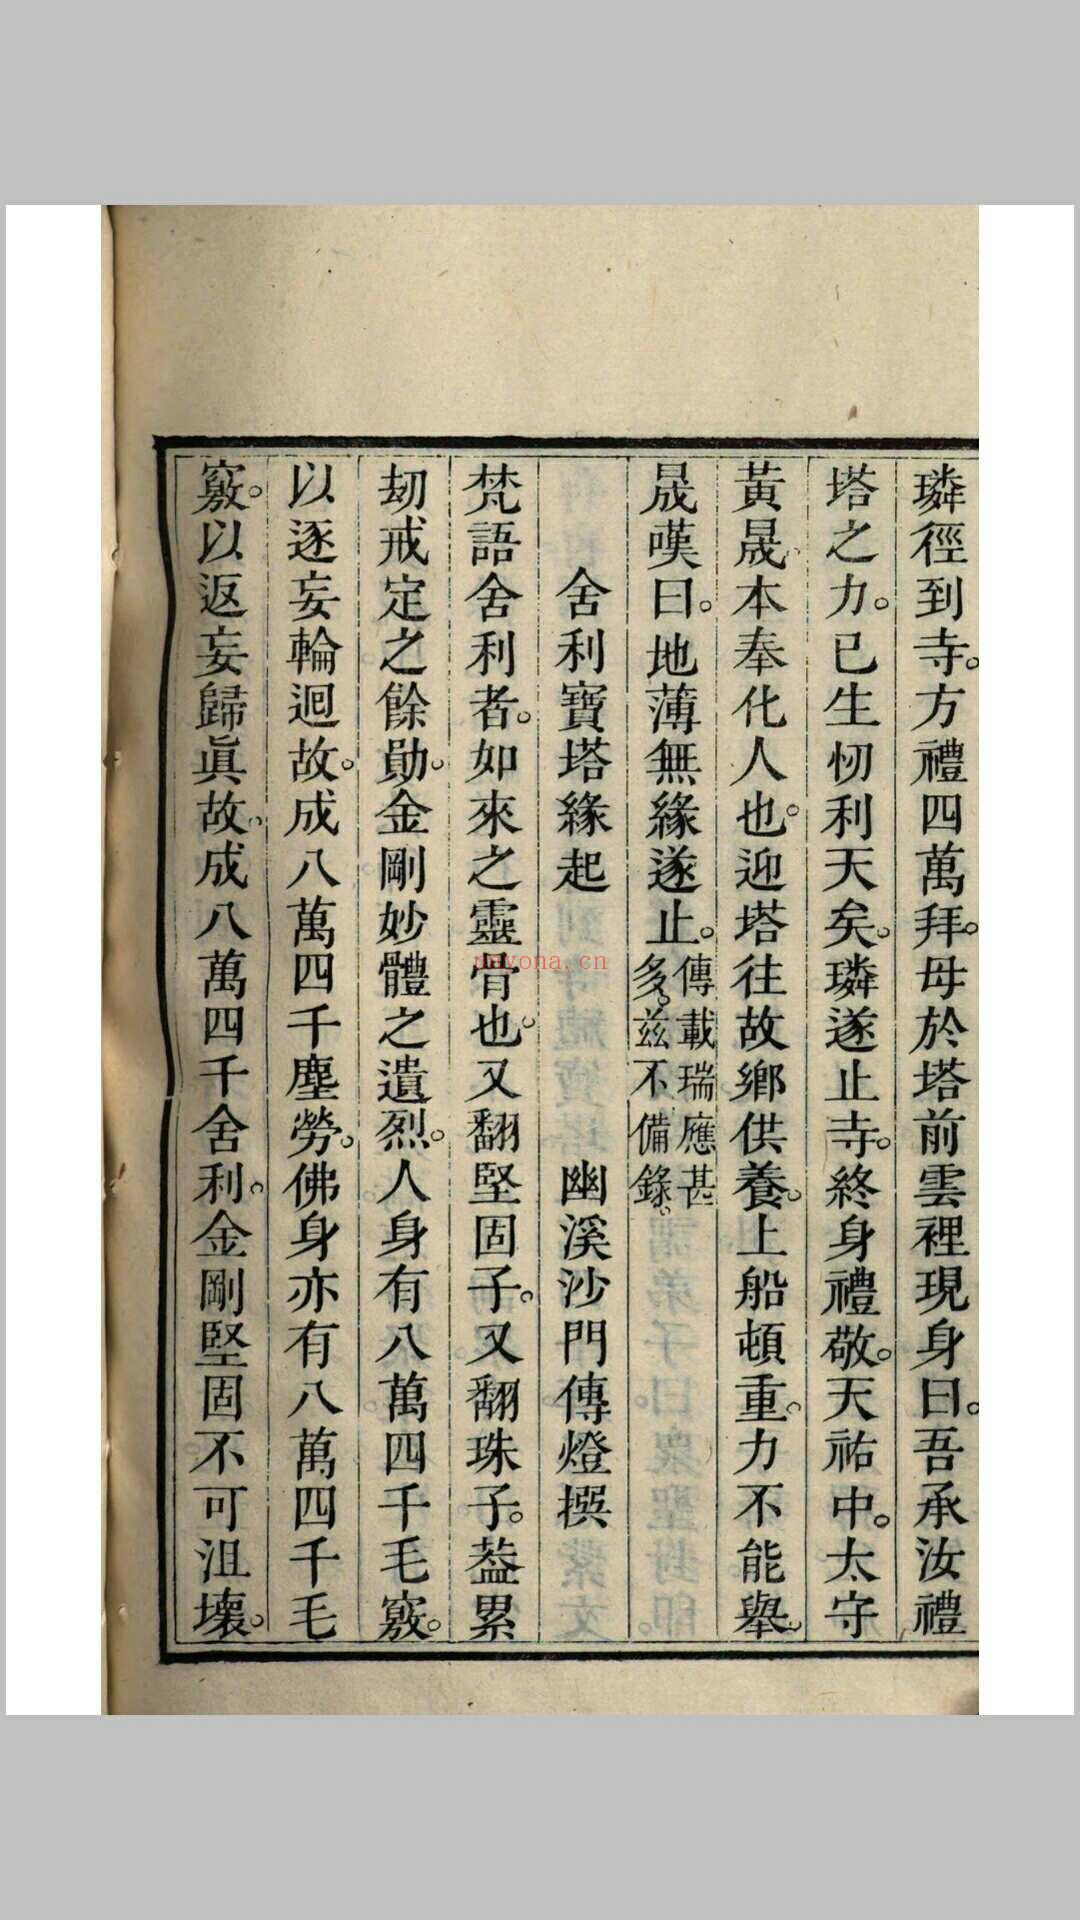 璘徑到寺。方禮四萬拜。母於塔前雲裡現身曰。吾承汝禮
塔之力。已生忉利天矣。璘遂止寺。終身禮敬。天祐中。太守
黃晟。本奉化人也。迎塔往故鄉供養。上船頓重。力不能舉。
晟嘆曰。地薄無緣遂止。傳載瑞應甚多。茲不備錄。
舍利寶塔緣起　　幽溪沙門傳燈撰
梵語舍利者。如來之靈骨也。又翻堅固子。又翻珠子。葢累
劫戒定之餘勛。金剛妙體之遺烈。人身有八萬四千毛竅。
以逐妄輪迴故。成八萬四千塵勞。佛身亦有八萬四千毛
竅。以返妄歸眞故。成八萬四千舍利。金剛堅固不可沮壞。
savona.cn